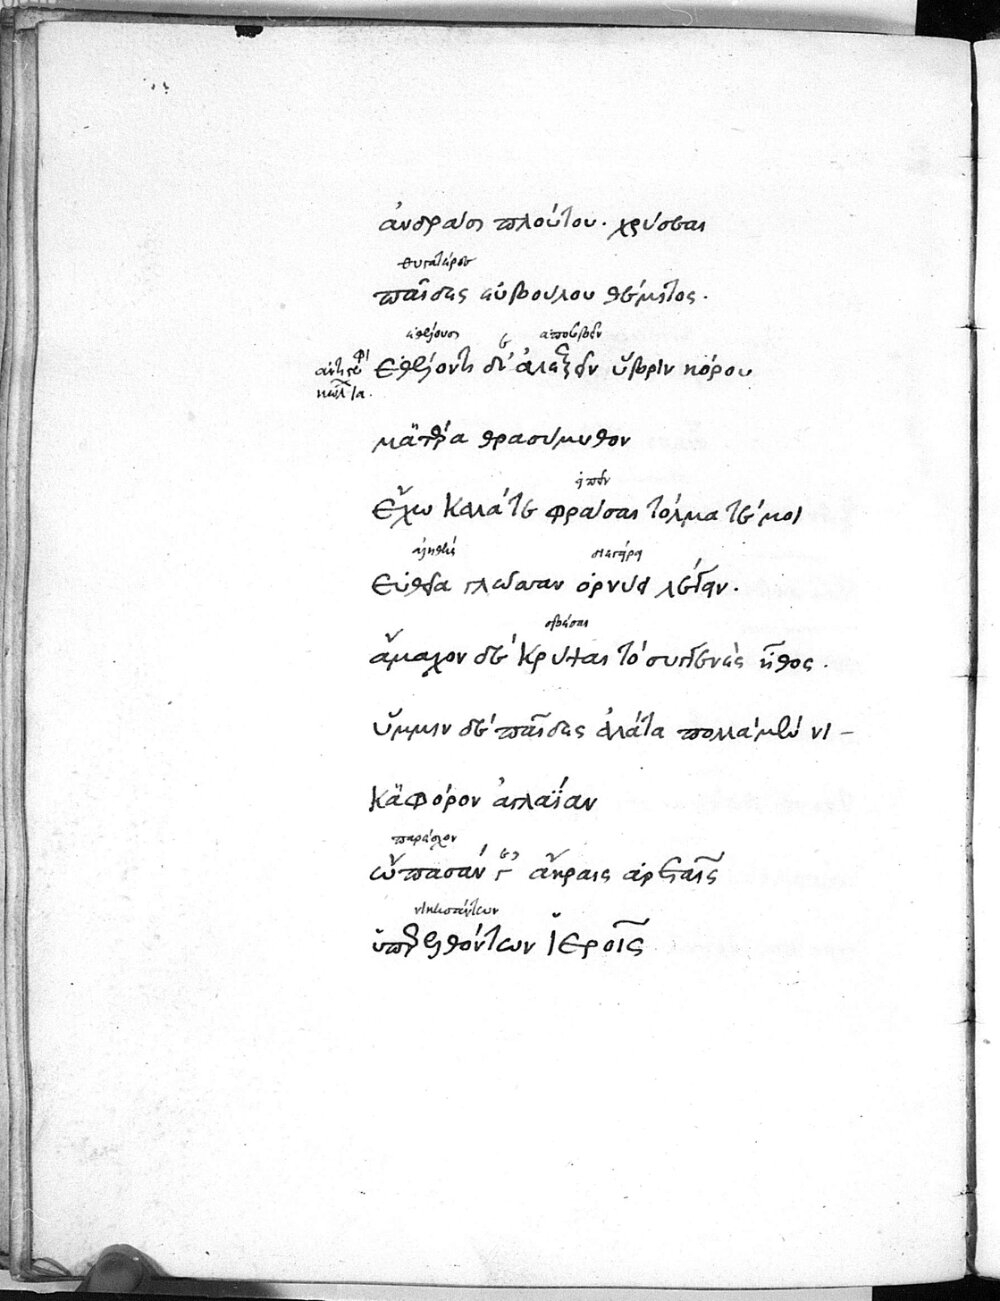 ἀνδράσι πλούτου· χρύσεαι
θυγατέρες
παῖδες εὐβούλου θέμιτος·
ἐθέλουσι ἀποσοβεῖν
ἐθέλοντι δ' ἀλέξειν ὕβριν κόρου
ματέρα θρασύμυθον
εἰπεῖν
ἔχω καλά τε φράσαι τόλμα τέ μοι
εὐθεῖα γλῶσσαν ὀρνύει λέγειν·
σβέσαι
ἄμαχον δὲ κρύψαι τὸ συγγενὲς ἦθος·
ὔμμιν δὲ παῖδες ἀλάτα πολλὰ μὲν νι-
καφόρον ἀγλαΐαν
παρέσχον
ὤπασαν γ' ἄκραις ἀρεταῖς
νικησάντων
ὑπερελθόντων ἱεροῖς